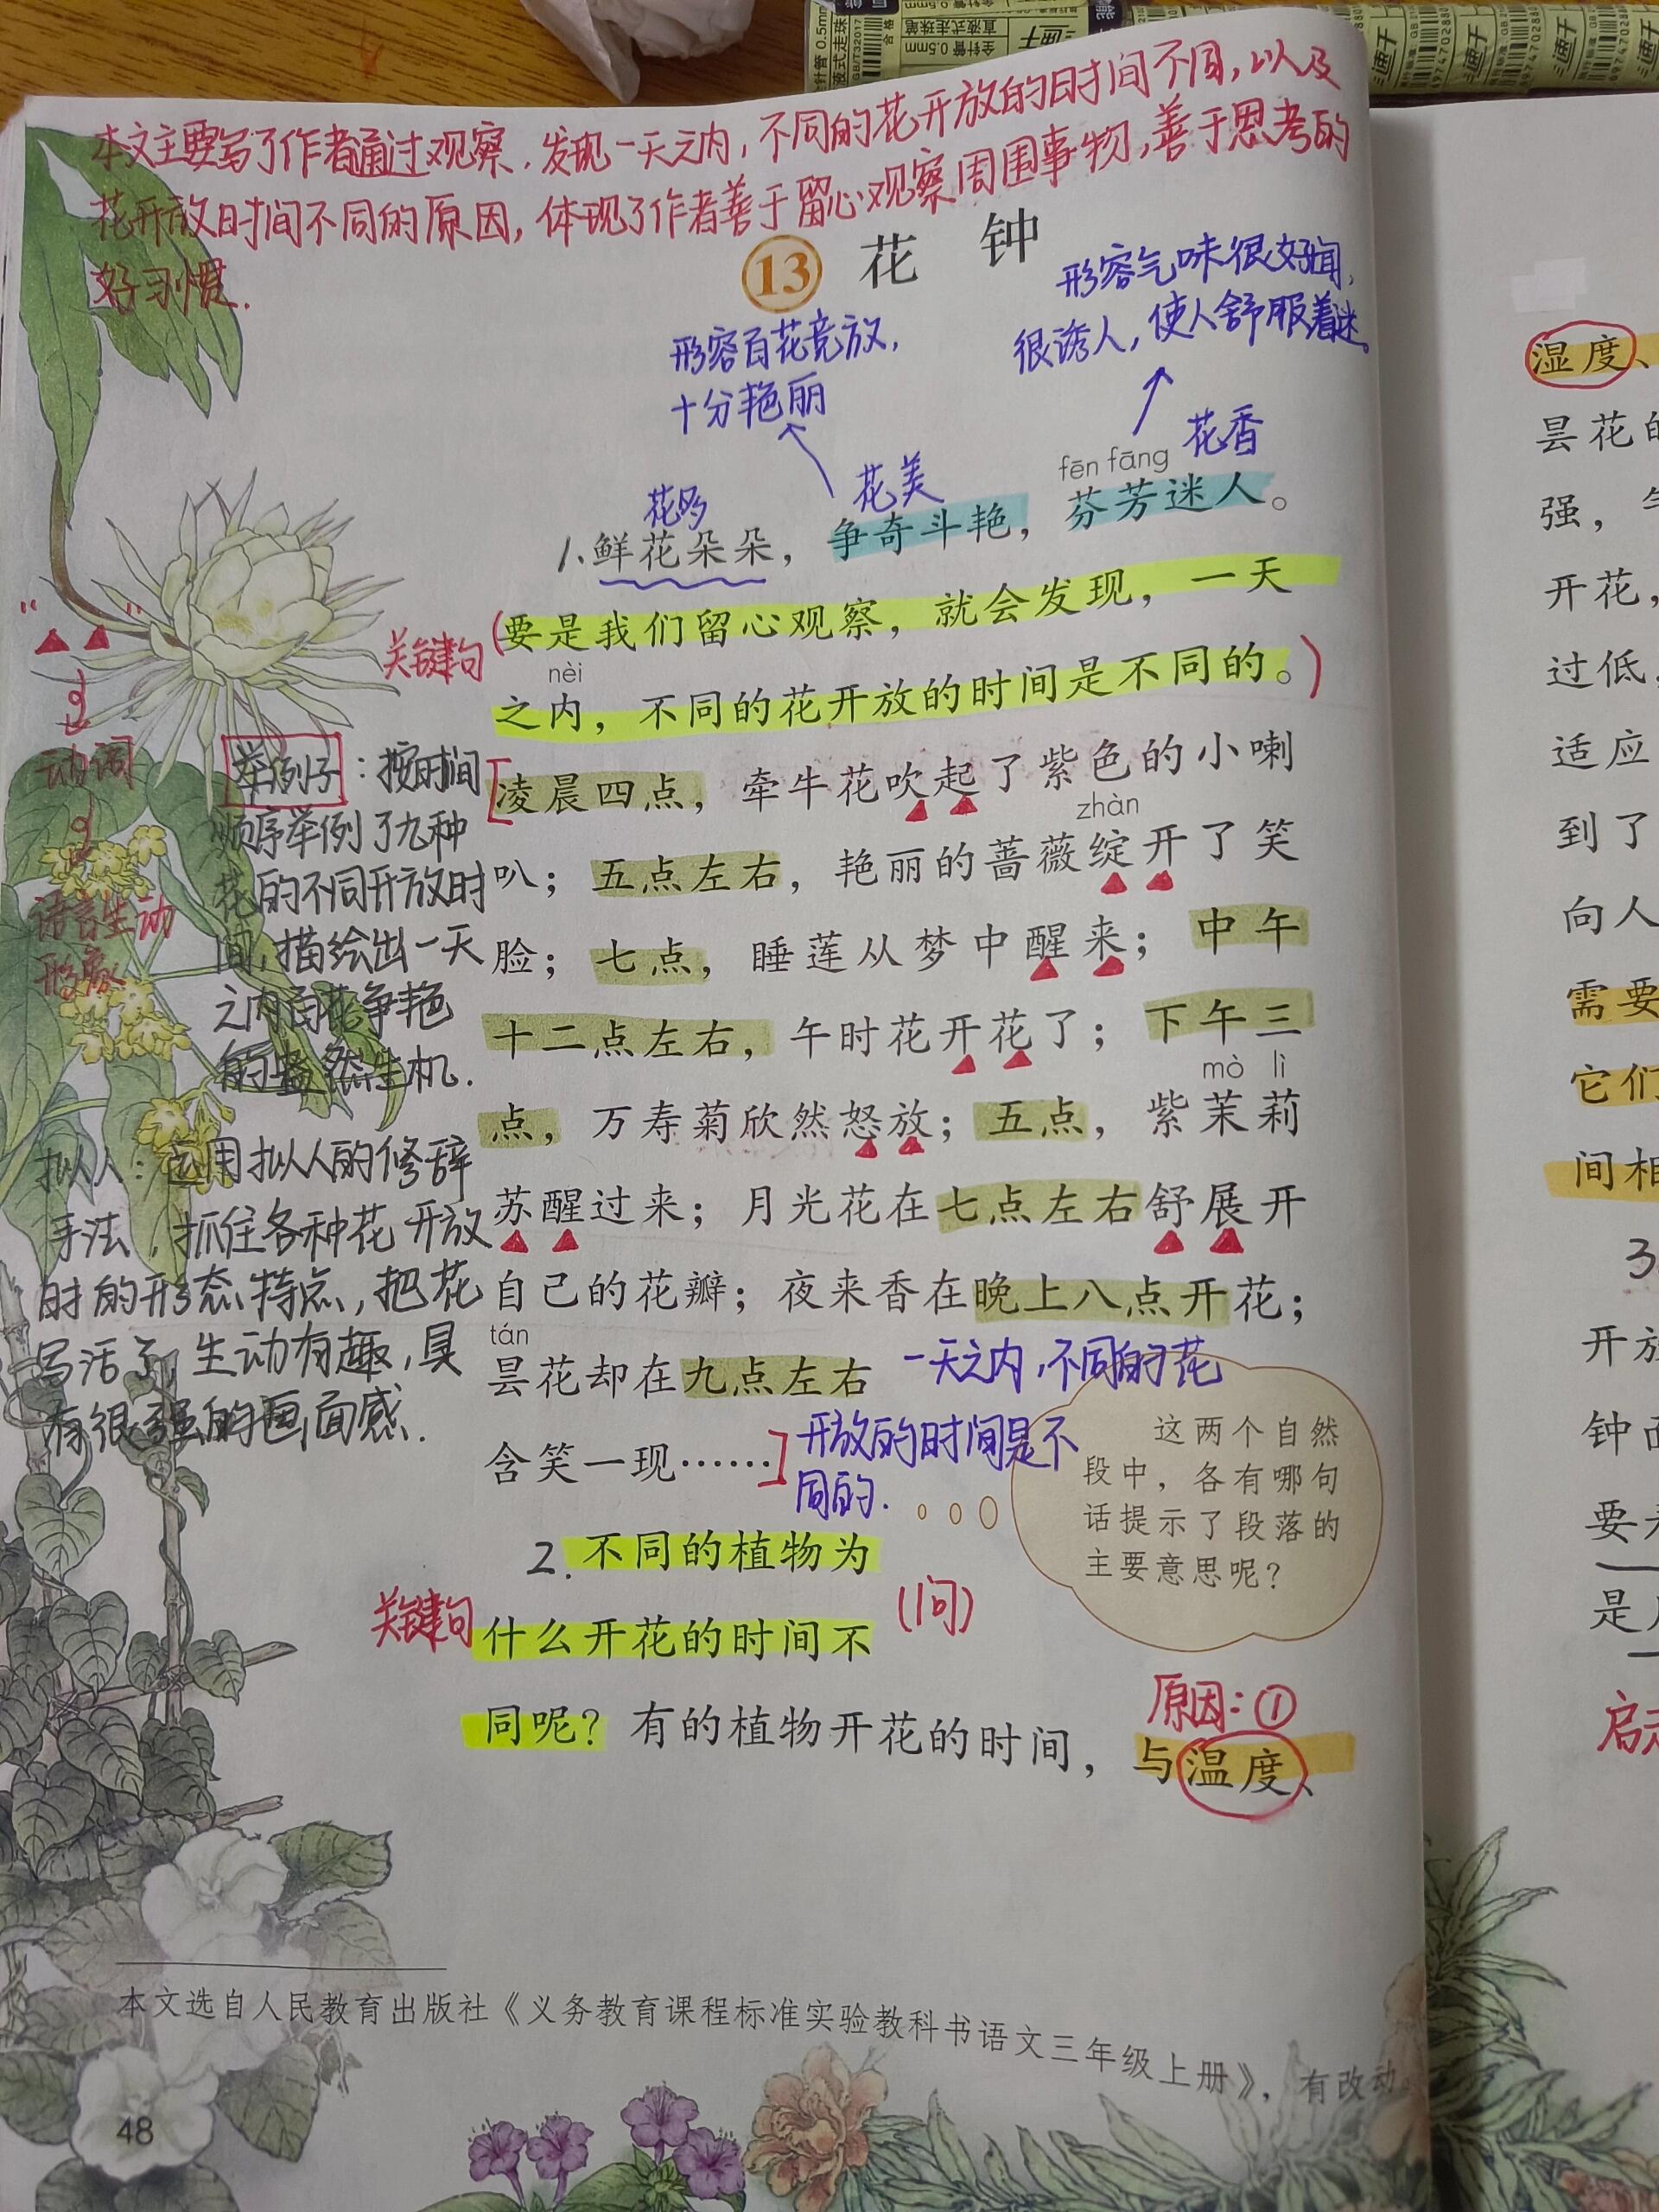 本文主要写了作者通过观察，发现一天之内，不同的花开放的时间不同，以及
花开放时间不同的原因，体现了作者善于留心观察周围事物，善于思考的
好习惯.
13 花 钟
形容气味很好闻，
很诱人，使人舒服着迷。
形容百花竞放，
十分艳丽
花多
花美
花香
fēn fāng
1.鲜花朵朵，争奇斗艳，芬芳迷人。
关键句
(要是我们留心观察，就会发现，一天
nèi
之内，不同的花开放的时间是不同的。)
[凌晨四点，牵牛花吹起了紫色的小喇
zhàn
叭；五点左右，艳丽的蔷薇绽开了笑
脸；七点，睡莲从梦中醒来；中午
十二点左右，午时花开花了；下午三
mò lì
点，万寿菊欣然怒放；五点，紫茉莉
苏醒过来；月光花在七点左右舒展开
自己的花瓣；夜来香在晚上八点开花；
tán
昙花却在九点左右
含笑一现……]
一天之内，不同的花
开放的时间是不
同的.
动词
语言生动
形象
举例子：按时间
顺序举例了九种
花的不同开放时
间，描绘出一天
之内百花争艳
的盎然生机.
拟人：运用拟人的修辞
手法，抓住各种花开放
时的形态特点，把花
写活了，生动有趣，具
有很强的画面感.
这两个自然
段中，各有哪句
话提示了段落的
主要意思呢？
2.不同的植物为
关键句
什么开花的时间不
(问)
同呢？有的植物开花的时间，与温度、
原因：①
本文选自人民教育出版社《义务教育课程标准实验教科书语文三年级上册》，有改动
48
湿度、
昙花的
强，
开花，
过低，
适应
到了
向人
需要
它们
间相
3
开放
钟面
要
是
启示